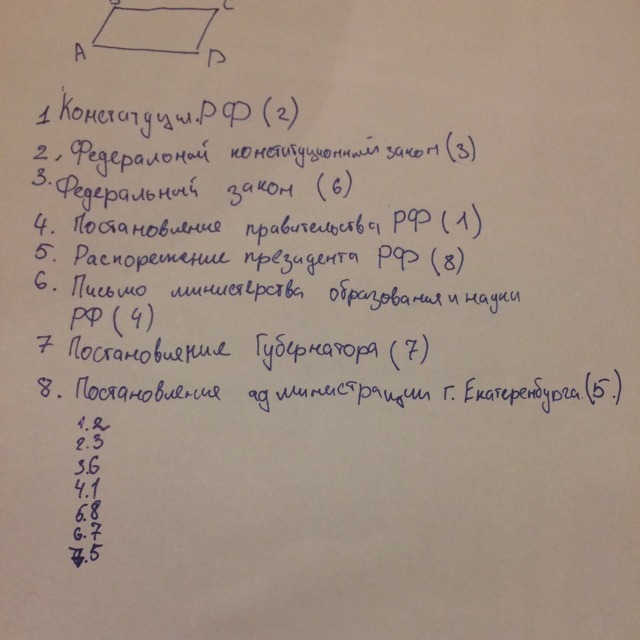 B C
A D
1 Конституция.РФ (2)
2. Федералоной конституционный закон (3)
3. Федеральный закон (6)
4. Постановление правительства РФ (1)
5. Распорежение президента РФ (8)
6. Письмо министерства образования и науки
РФ (4)
7 Постановление Губернатора (7)
8. Постановление администрации г. Екатеренбурга. (5.)
1.2
2.3
3.6
4.1
6.8
6.7
7.5